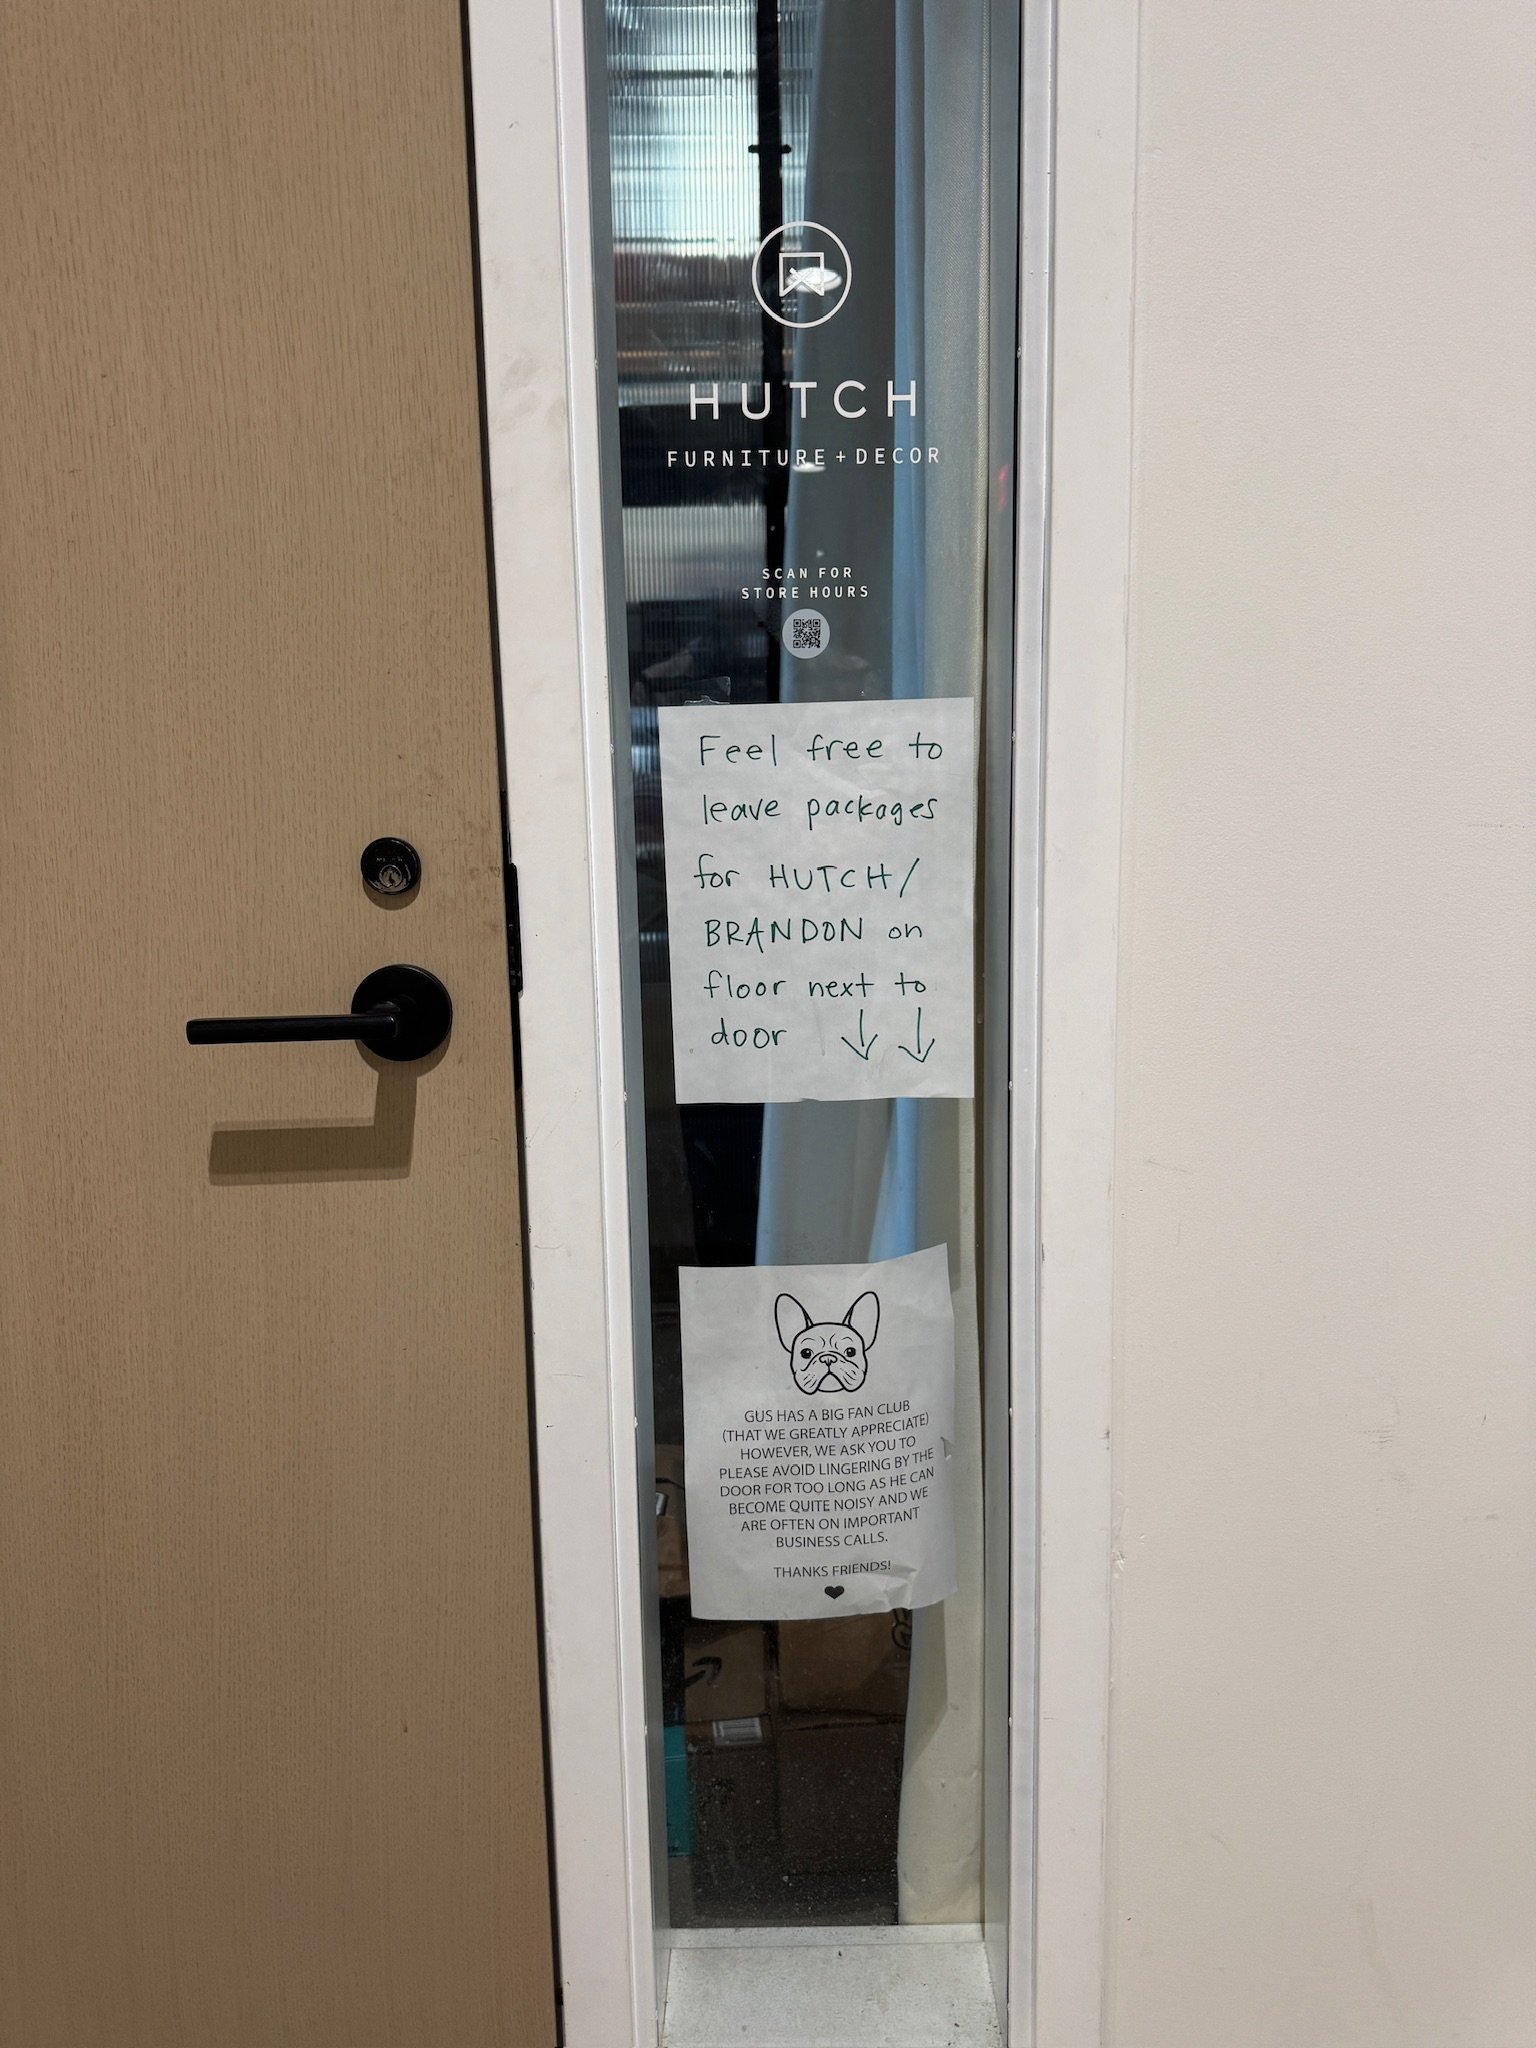 HUTCH
FURNITURE + DECOR
SCAN FOR
STORE HOURS
Feel free to
leave packages
for HUTCH/
BRANDON on
floor next to
door ↓ ↓
GUS HAS A BIG FAN CLUB
(THAT WE GREATLY APPRECIATE)
HOWEVER, WE ASK YOU TO
PLEASE AVOID LINGERING BY THE
DOOR FOR TOO LONG AS HE CAN
BECOME QUITE NOISY AND WE
ARE OFTEN ON IMPORTANT
BUSINESS CALLS.
THANKS FRIENDS!